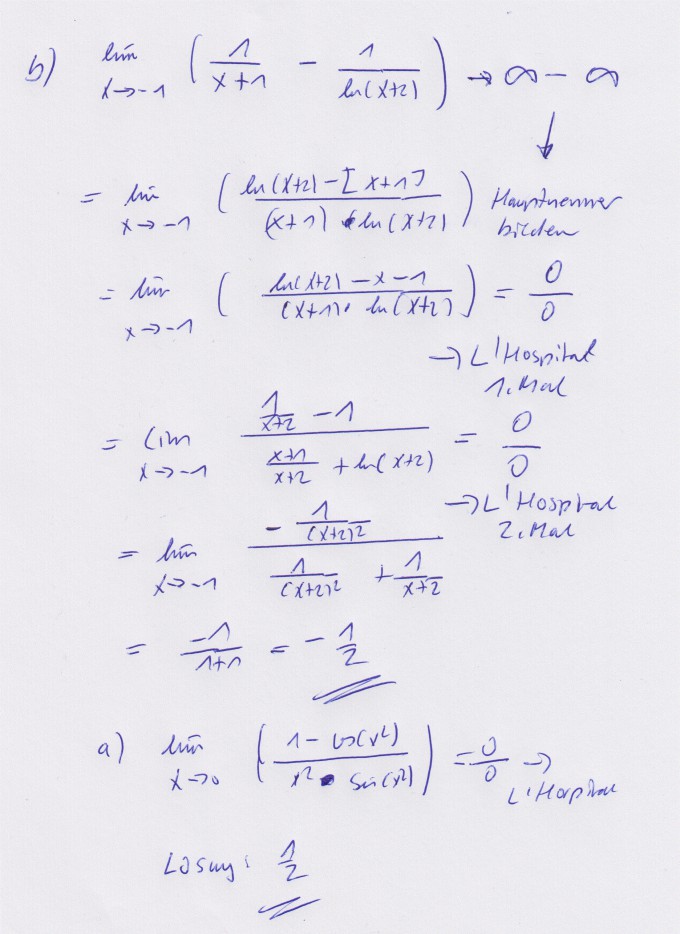 b) lim x→-1 ( 1/(x+1) - 1/ln(x+2) ) → ∞ - ∞
↓
= lim x→-1 ( (ln(x+2) - [x+1]) / ((x+1) · ln(x+2)) ) Hauptnenner bilden
= lim x→-1 ( (ln(x+2) - x - 1) / ((x+1) · ln(x+2)) ) = 0/0
→ L'Hospital
1. Mal
= lim x→-1 (1/(x+2) - 1) / ((x+1)/(x+2) + ln(x+2)) = 0/0
→ L'Hospital
2. Mal
= lim x→-1 (- 1/(x+2)²) / (1/(x+2)² + 1/(x+2))
= -1/(1+1) = - 1/2
a) lim x→0 ( (1 - cos(x²)) / (x² · sin(x²)) ) = 0/0 →
L'Hospital
Lösung: 1/2